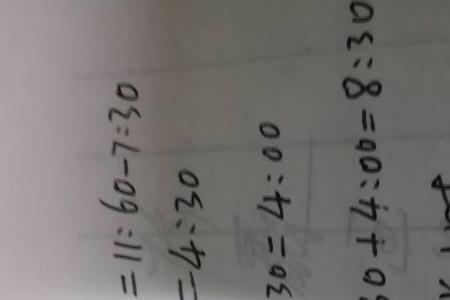 =11:60-7:30
=4:30
30=4:00
30+4:00=8:30